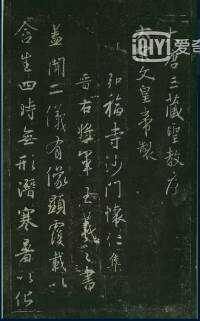 大唐三藏聖教序
太宗文皇帝製
弘福寺沙門懷仁集
晉右將軍王羲之書
蓋聞二儀有像顯覆載以
含生四時無形潛寒暑以化
iQIYI
爱奇艺